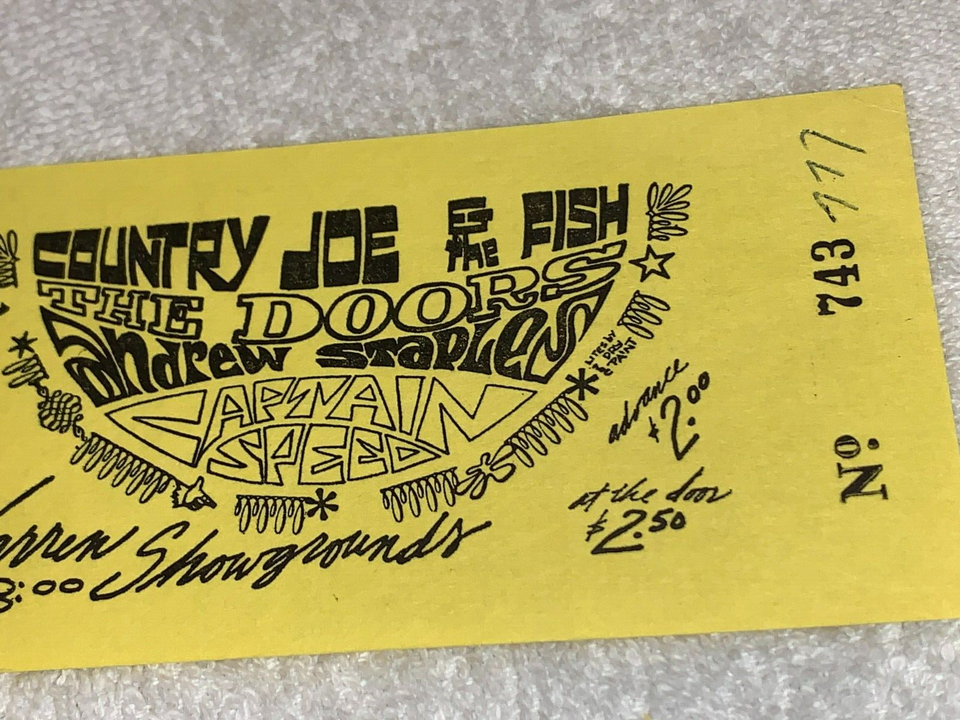 COUNTRY JOE & the FISH
THE DOORS
andrew STAPLES
CAPTAIN
SPEED
LITES BY
DRY
PAINT
advance
$2.00
at the door
$2.50
arren Showgrounds
8:00
Nº 743 777